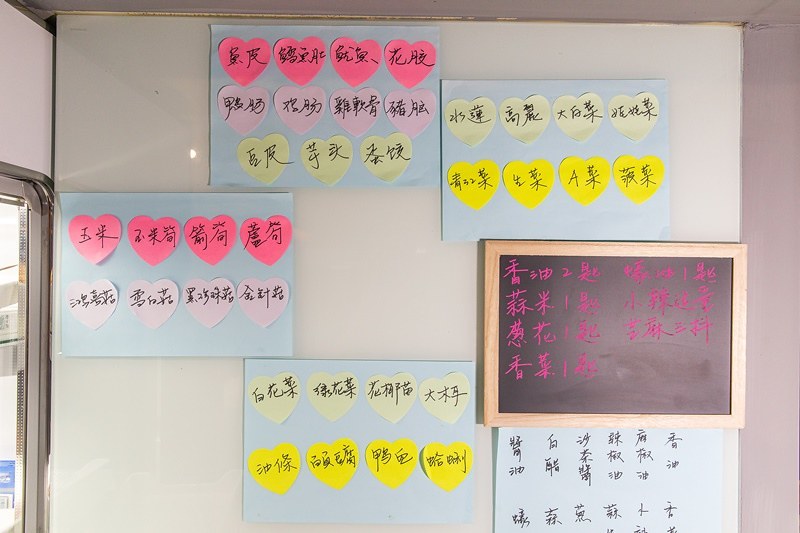 魚皮 鱈魚肚 魷魚 花胶
鴨肠 鸡肠 雞軟骨 豬脑
豆皮 芋头 蛋饺
水蓮 高麗 大白菜 娃娃菜
青江菜 生菜 A菜 菠菜
玉米 玉米筍 箭筍 蘆筍
鴻喜菇 雪白菇 黑珍珠菇 金針菇
香油2匙 蠔油1匙
蒜米1匙 小辣適量
蔥花1匙 芝麻三抖
香菜1匙
白花菜 绿花菜 花椰苗 大木耳
油條 百頁豆腐 鴨血 蛤蜊
醬油 白醋 沙茶醬 辣椒油 麻椒油 香油
蠔 蒜 蔥 蒜 小 香